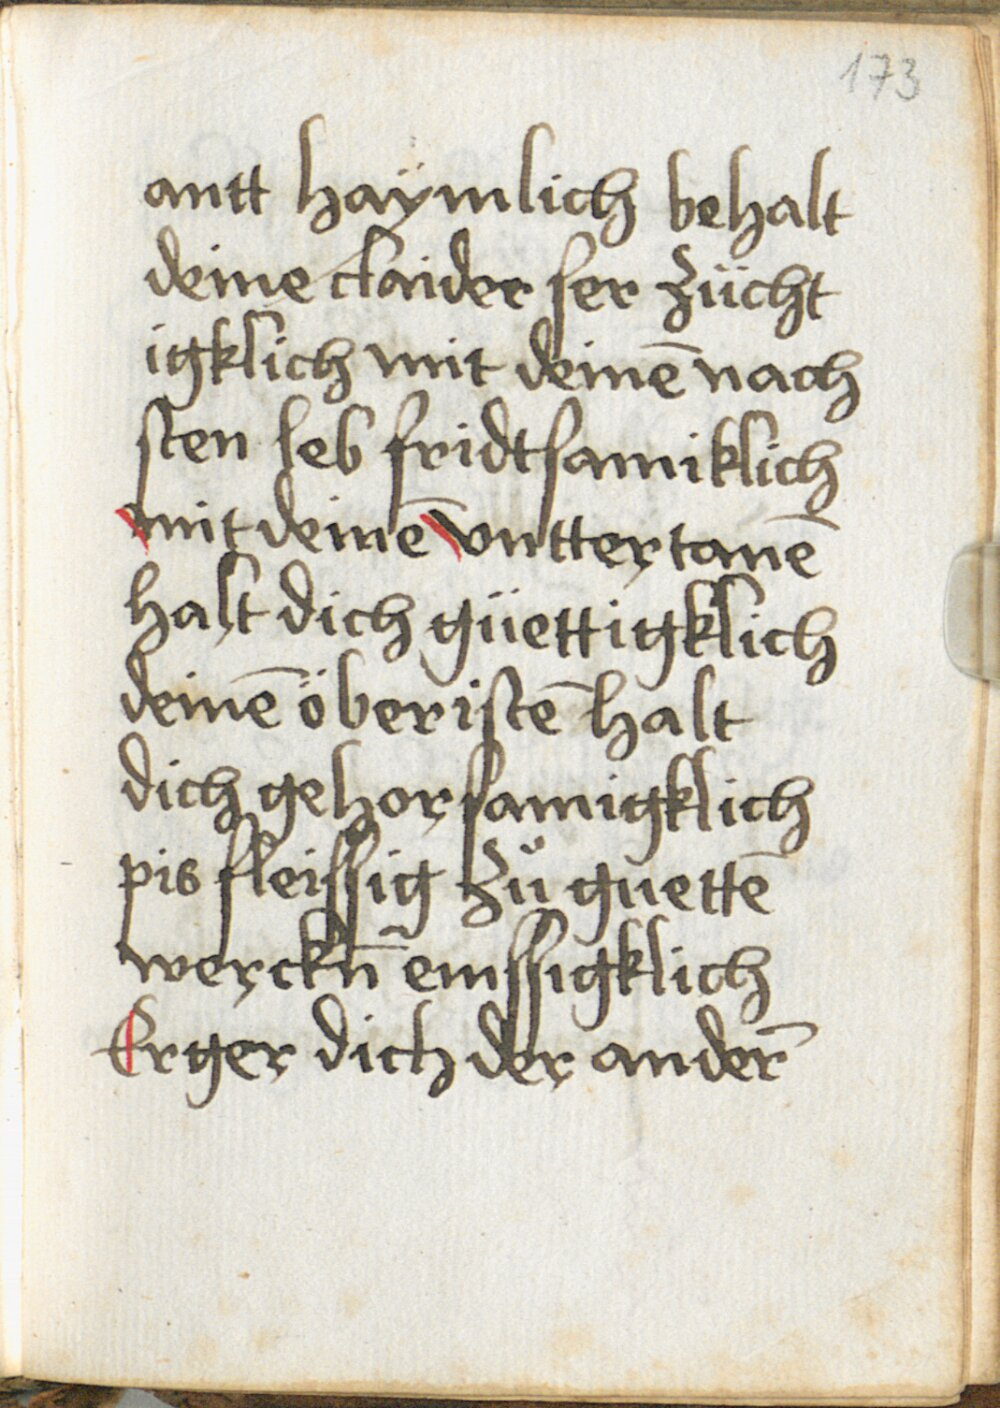 173
antt haÿmlich behalt
deine claider ser zücht
igklich mit deinē nach
sten leb fridtsamiklich
mit deinē vnttertanē
halt dich güettigklich
deinē öberistē halt
dich gehorsamigklich
pis fleissig zů guettē
werckn̄ emssigklich
Erger dich der ander̄